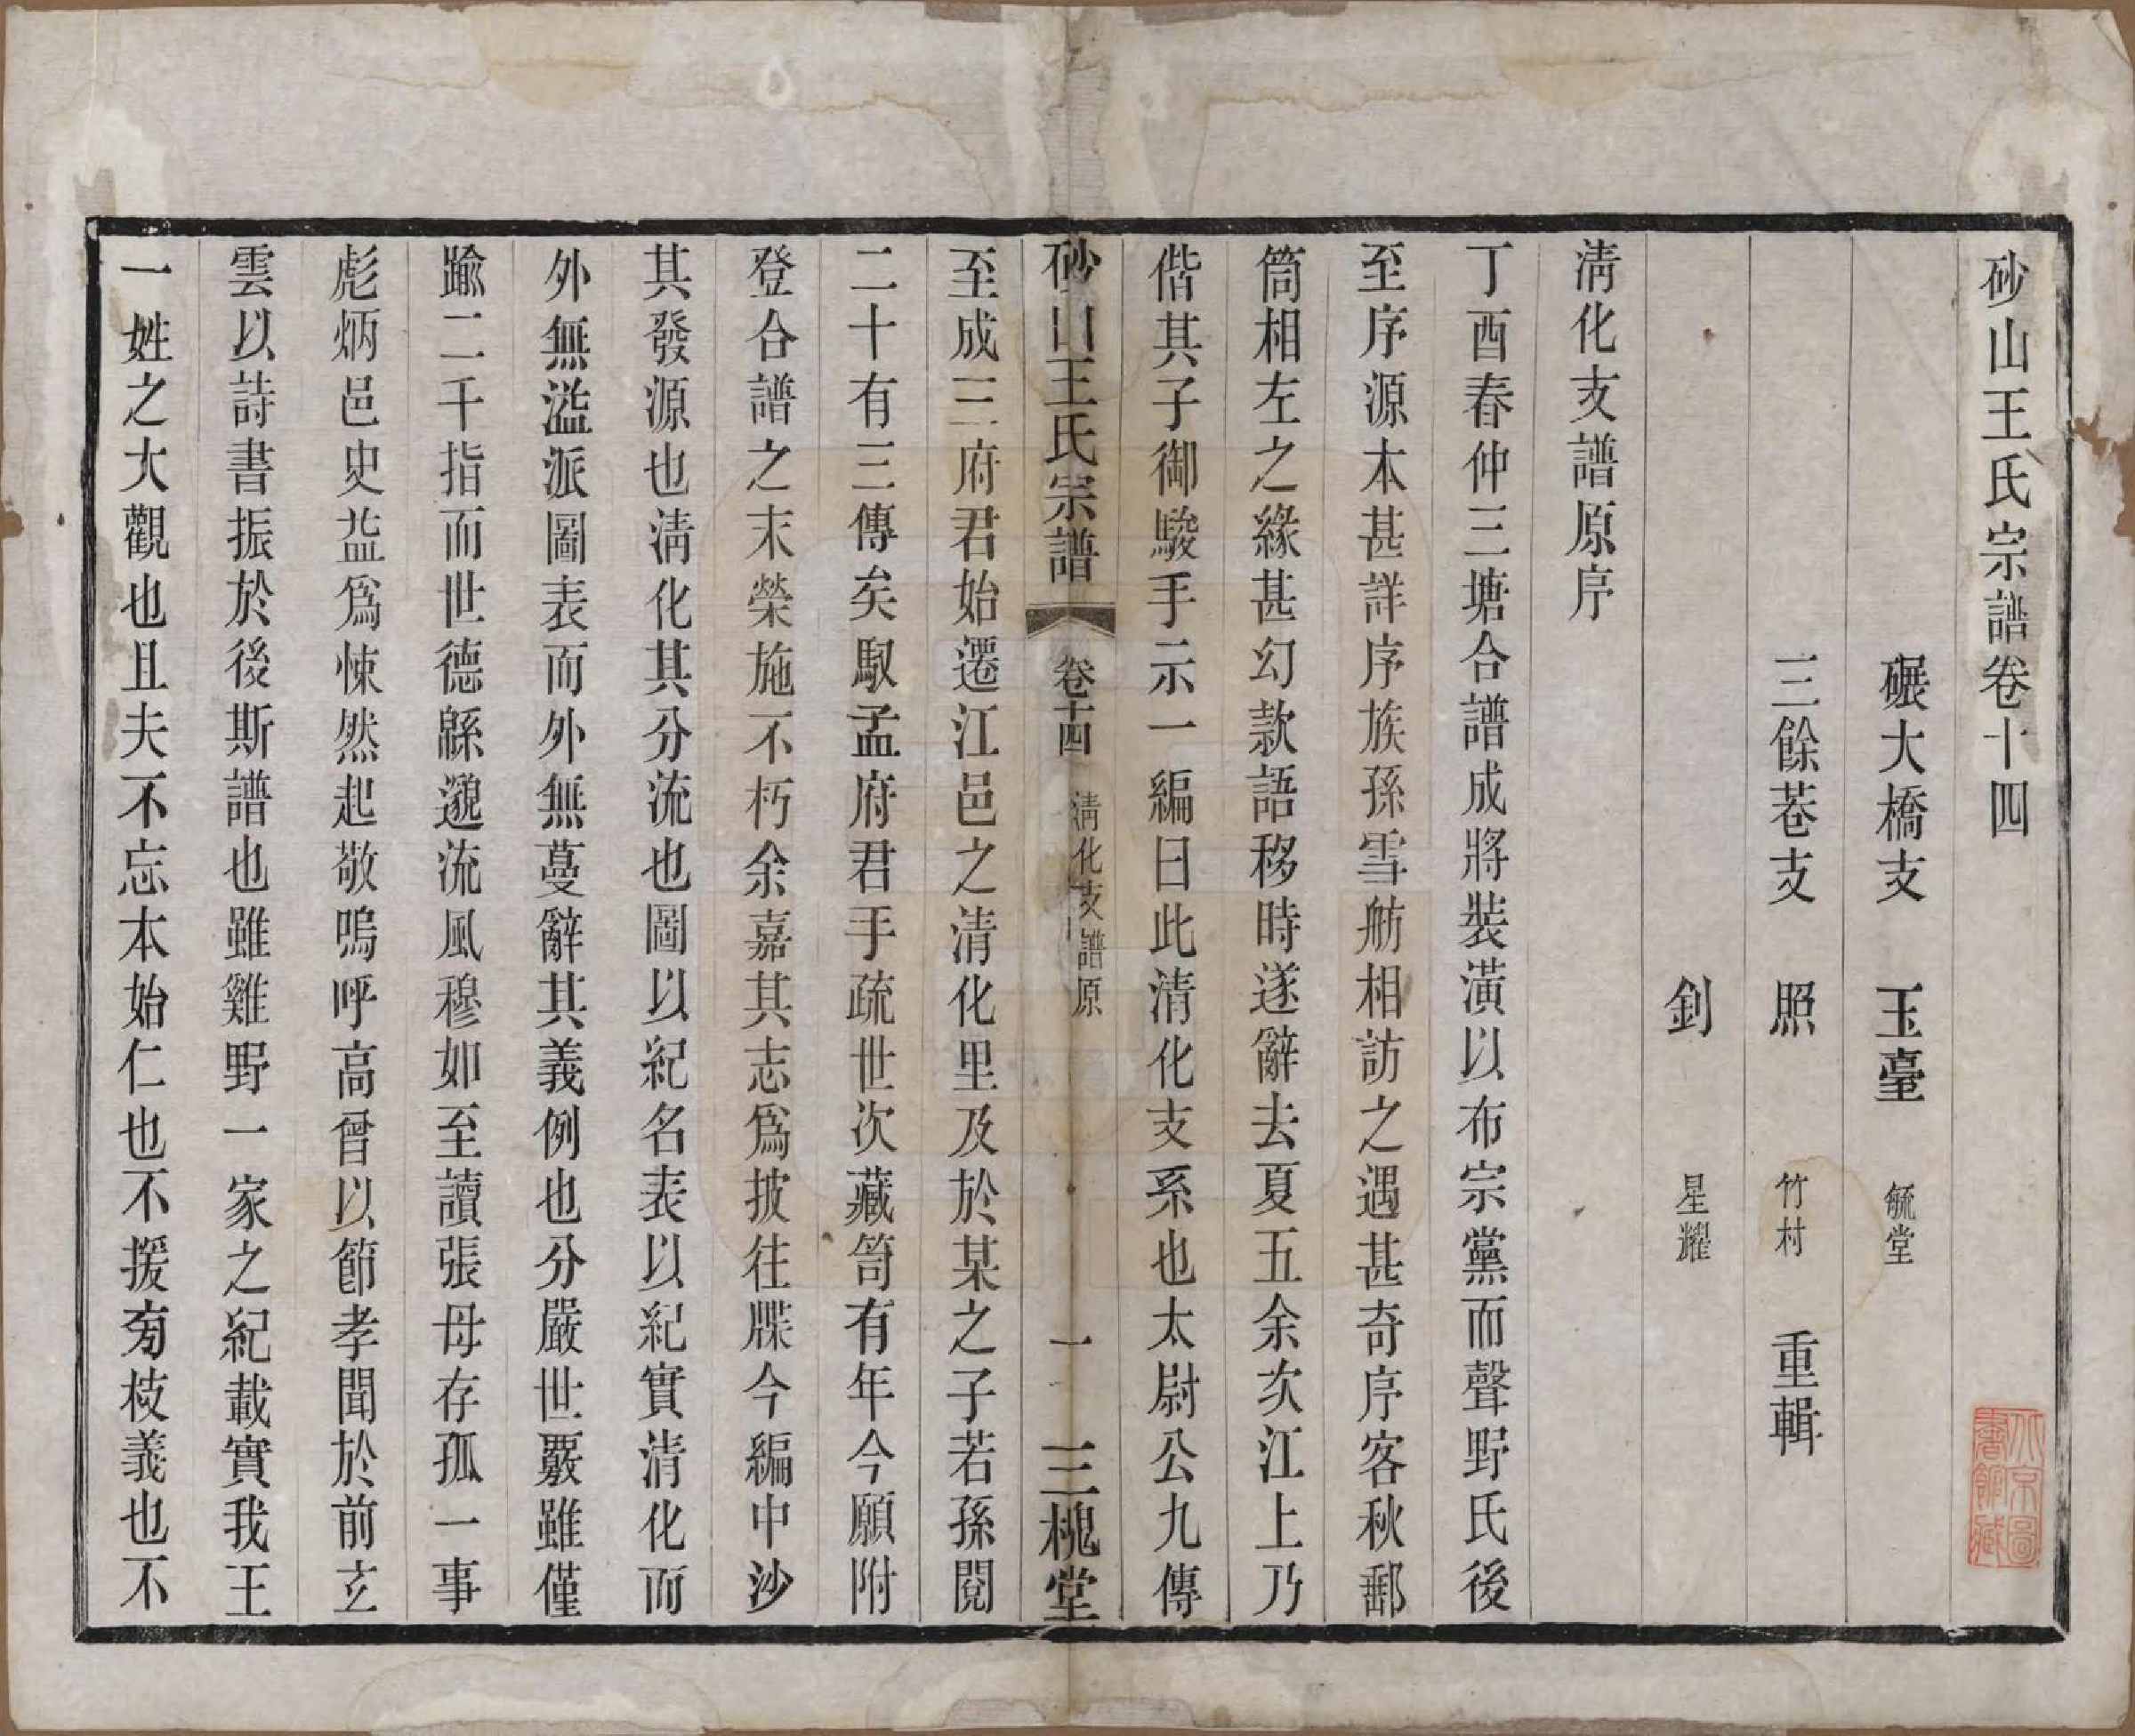 砂山王氏宗譜卷十四
碾大橋支　玉臺　毓堂
三餘巷支　照　竹村　重輯
釗　星耀
淸化支譜原序
丁酉春仲三塘合譜成將裝潢以布宗黨而聲野氏後
至序源本甚詳序族孫雪舫相訪之遇甚奇序客秋郵
筒相左之緣甚幻款語移時遂辭去夏五余次江上乃
偕其子御駿手示一編曰此清化支系也太尉公九傳
砂山王氏宗譜　卷十四　淸化支譜原　一　三槐堂
至成三府君始遷江邑之清化里及於某之子若孫閱
二十有三傳矣馭孟府君手疏世次藏笥有年今願附
登合譜之末榮施不朽余嘉其志爲披往牒今編中沙
其發源也淸化其分流也圖以紀名表以紀實清化而
外無濫派圖表而外無蔓辭其義例也分嚴世覈雖僅
踰二千指而世德緜邈流風穆如至讀張母存孤一事
彪炳邑史益爲悚然起敬嗚呼高曾以節孝聞於前玄
雲以詩書振於後斯譜也雖雞野一家之紀載實我王
一姓之大觀也且夫不忘本始仁也不援旁枝義也不
北京圖書館藏